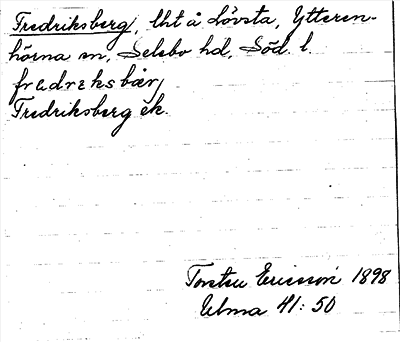 Fredriksberg, lht å Lövsta, Ytteren-
hörna sn, Selebo hd, Söd. l.
fredreksbærj
Fredriksberg ek.
Torsten Ericsson 1898
Ulma 41:50